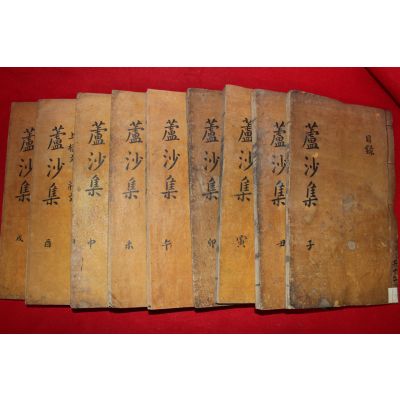 蘆沙集 子
目錄
蘆沙集 丑
蘆沙集 寅
蘆沙集 卯
蘆沙集 午
蘆沙集 未
蘆沙集 申
蘆沙集 酉
蘆沙集 戌